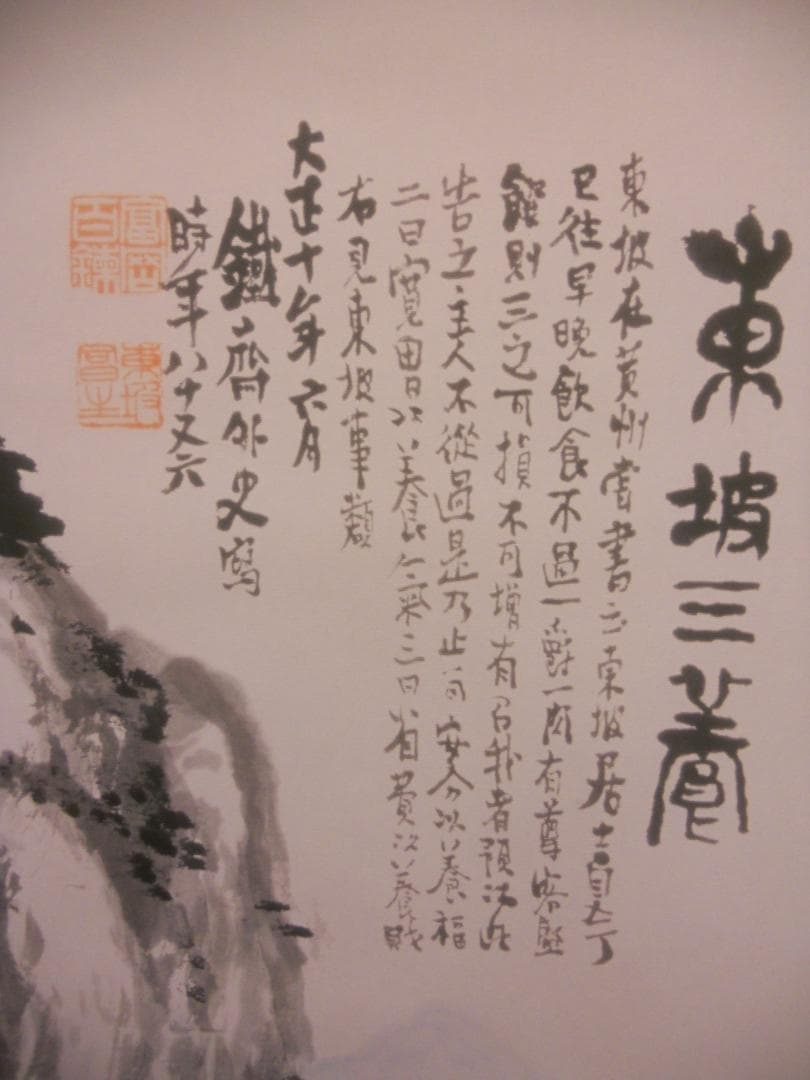 東坡三養
東坡在黃州嘗書云東坡居士自今
已往早晚飲食不過一爵一肉有尊客盛
饌則三之可損不可增有召我者預以此
告之主人不從過是乃止一曰安分以養福
二曰寬胃以養氣三曰省費以養財
右見東坡事類
大正十年六月
鐵齋外史寫
時年八十又六
富岡百鍊
東坡